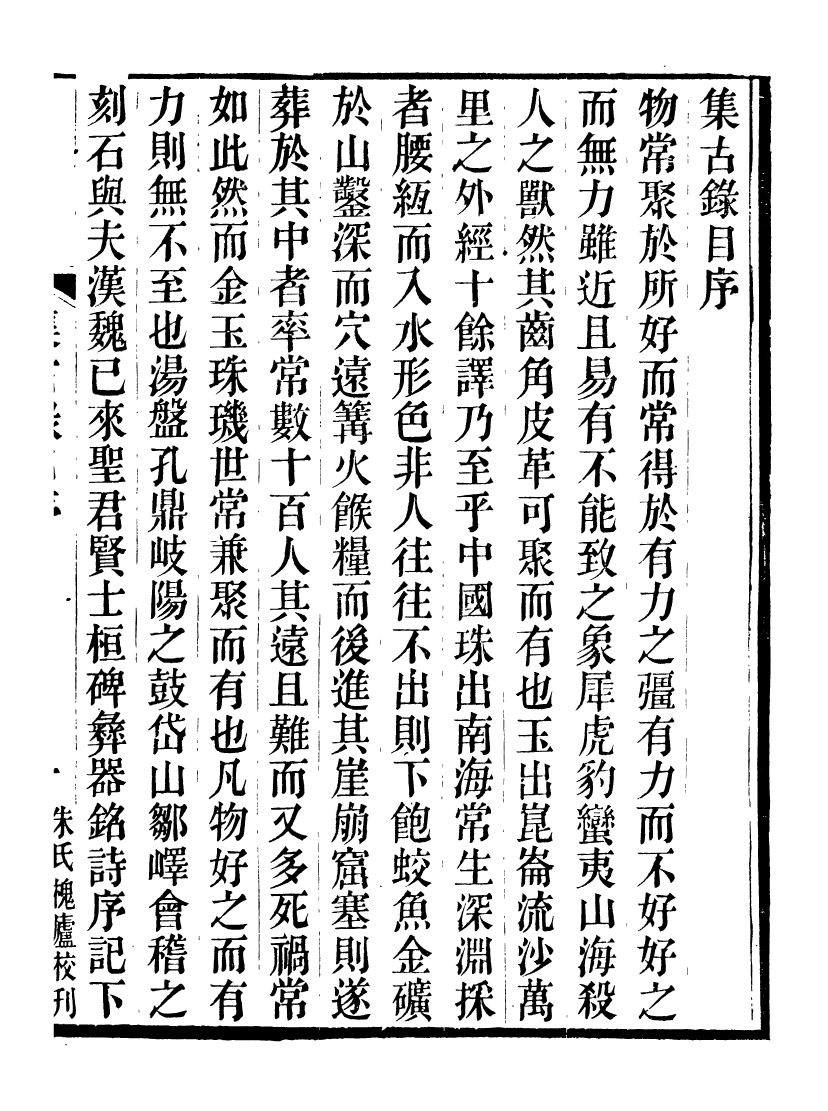 集古錄目序
物常聚於所好而常得於有力之彊有力而不好好之
而無力雖近且易有不能致之象犀虎豹蠻夷山海殺
人之獸然其齒角皮革可聚而有也玉出崑崙流沙萬
里之外經十餘譯乃至乎中國珠出南海常生深淵採
者腰絙而入水形色非人往往不出則下飽蛟魚金礦
於山鑿深而穴遠篝火餱糧而後進其崖崩窟塞則遂
葬於其中者率常數十百人其遠且難而又多死禍常
如此然而金玉珠璣世常兼聚而有也凡物好之而有
力則無不至也湯盤孔鼎岐陽之鼓岱山鄒嶧會稽之
刻石與夫漢魏已來聖君賢士桓碑彝器銘詩序記下
朱氏槐廬校刊